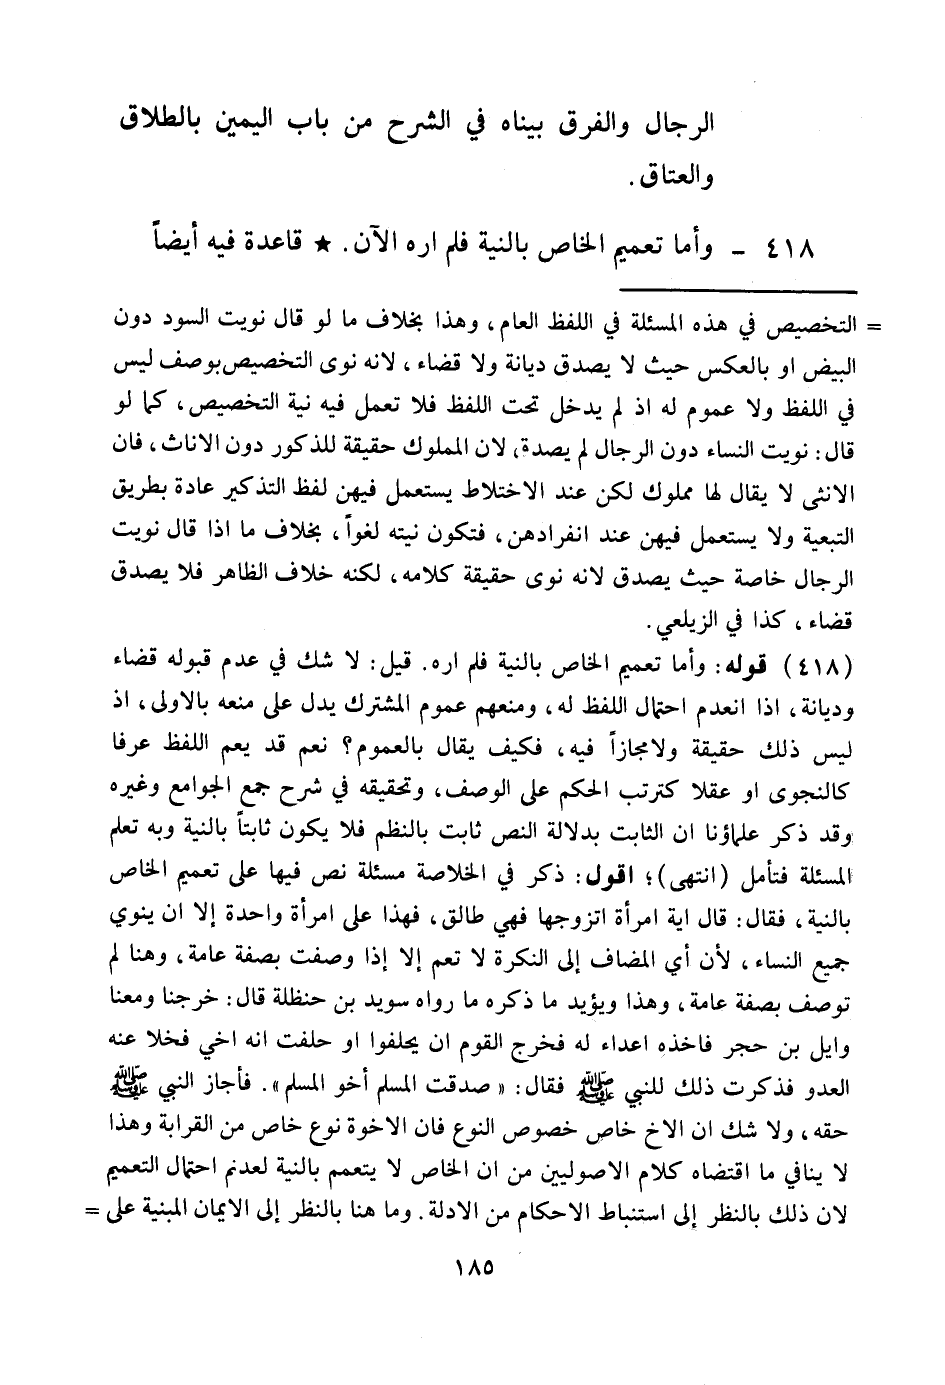 الرجال والفرق بيناه في الشرح من باب اليمين بالطلاق
والعتاق.
٤١٨ – وأما تعميم الخاص بالنية فلم اره الآن. ★ قاعدة فيه أيضاً
= التخصيص في هذه المسئلة في اللفظ العام، وهذا بخلاف ما لو قال نويت السود دون
البيض او بالعكس حيث لا يصدق ديانة ولا قضاء، لانه نوى التخصيص بوصف ليس
في اللفظ ولا عموم له اذ لم يدخل تحت اللفظ فلا تعمل فيه نية التخصيص، كما لو
قال: نويت النساء دون الرجال لم يصدق، لان المملوك حقيقة للذكور دون الاناث، فان
الانثى لا يقال لها مملوك لكن عند الاختلاط يستعمل فيهن لفظ التذكير عادة بطريق
التبعية ولا يستعمل فيهن عند انفرادهن، فتكون نيته لغواً، بخلاف ما اذا قال نويت
الرجال خاصة حيث يصدق لانه نوى حقيقة كلامه، لكنه خلاف الظاهر فلا يصدق
قضاء، كذا في الزيلعي.
(٤١٨) قوله: وأما تعميم الخاص بالنية فلم اره. قيل: لا شك في عدم قبوله قضاء
وديانة، اذا انعدم احتمال اللفظ له، ومنعهم عموم المشترك يدل على منعه بالاولى، اذ
ليس ذلك حقيقة ولا مجازاً فيه، فكيف يقال بالعموم؟ نعم قد يعم اللفظ عرفا
كالنجوى او عقلا كترتب الحكم على الوصف، وتحقيقه في شرح جمع الجوامع وغيره
وقد ذكر علماؤنا ان الثابت بدلالة النص ثابت بالنظم فلا يكون ثابتاً بالنية وبه تعلم
المسئلة فتأمل (انتهى)؛ اقول: ذكر في الخلاصة مسئلة نص فيها على تعميم الخاص
بالنية، فقال: قال اية امرأة اتزوجها فهي طالق، فهذا على امرأة واحدة إلا ان ينوي
جميع النساء، لأن أي المضاف إلى النكرة لا تعم إلا إذا وصفت بصفة عامة، وهنا لم
توصف بصفة عامة، وهذا ويؤيد ما ذكره ما رواه سويد بن حنظلة قال: خرجنا ومعنا
وايل بن حجر فاخذه اعداء له فخرج القوم ان يحلفوا او حلفت انه اخي فخلا عنه
العدو فذكرت ذلك للنبي ﷺ فقال: «صدقت المسلم أخو المسلم». فأجاز النبي ﷺ
حقه، ولا شك ان الاخ خاص خصوص النوع فان الاخوة نوع خاص من القرابة وهذا
لا ينافي ما اقتضاه كلام الاصوليين من ان الخاص لا يتعمم بالنية لعدنم احتمال التعميم
لان ذلك بالنظر إلى استنباط الاحكام من الادلة. وما هنا بالنظر إلى الايمان المبنية على =
١٨٥